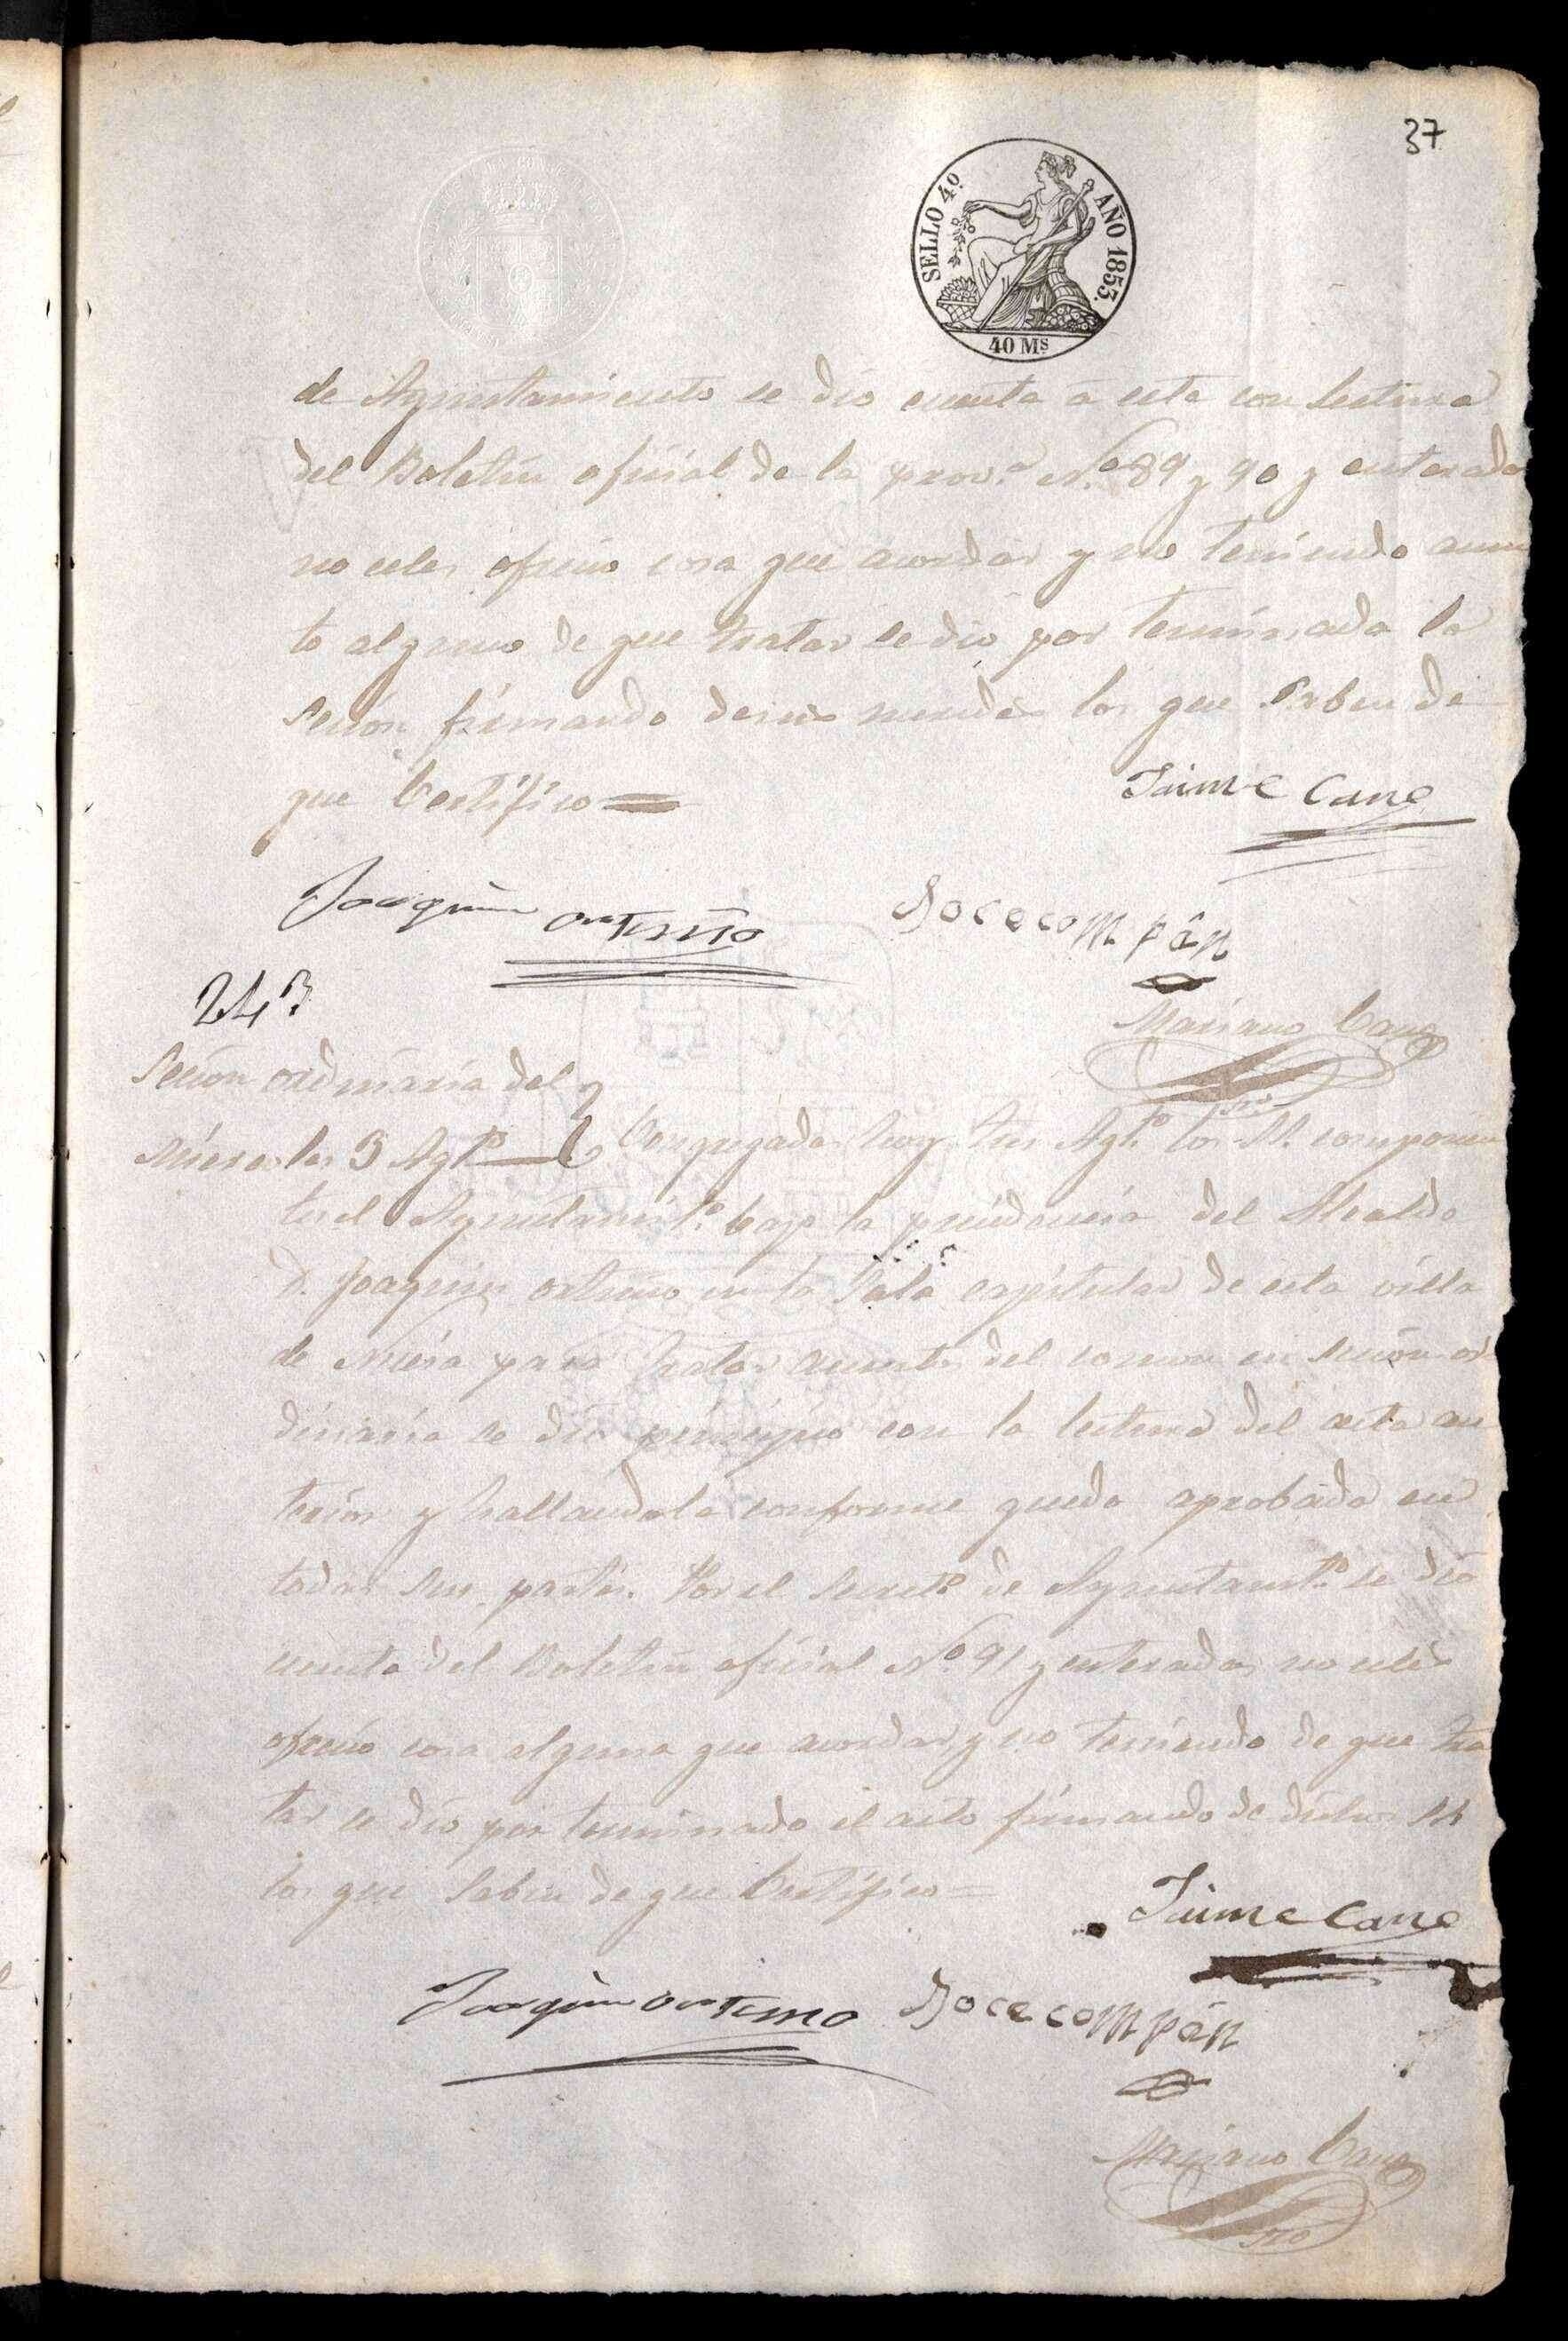 37
SELLO 4º. AÑO 1853.
40 Ms
de Ayuntamiento se dio cuenta á este con lectura
del Boletin oficial de la prov.ª Nº 89 y 90 y enterados
no seles ofrecio cosa que acordar y no teniendo asun
to alguno de que tratar se dio por terminada la
secion firmando los que saben de
que Certifico =
Jaime Cano
Joaquin ortuño
Rocecompán
Mariano Cano
Srio
24ª
Secion ordinaria del
Miercoles 3 Agtº
Congregados hoy tres Agtº los SS. componen
tes el Ayuntamtº bajo la presidencia del Alcalde
D. Joaquin ortuño en la Sala capitular de esta villa
de para tratar asuntos del comun en secion or
dinaria se dio principio con la lectura del acta an
terior y hallandola conforme quedo aprobada en
todas sus partes. Por el Secretº de Ayuntamtº se dio
cuenta del Boletin oficial Nº 91 y enterados no seles
ofrecio cosa alguna que acordar, y no teniendo de que tra
tar se dio por terminado el acto firmando de dichos SS
los que saben de que Certifico =
Jaime Cano
Joaquin ortuño
Rocecompán
Mariano Cano
Srio